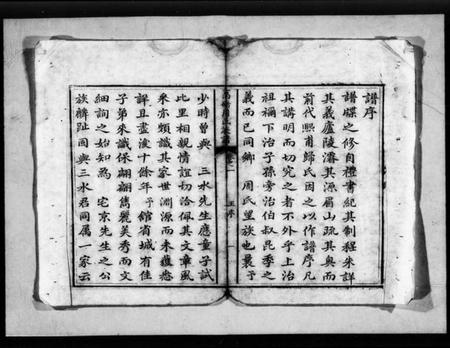 譜序
譜牒之修自禮書紀其制程朱詳
其義廬陵濬其源眉山疏其與而
前代熙甫歸氏因之以作譜序凡
其講明而切究之者不外乎上治
祖禰下治子孫旁治伯叔昆季之
義而已同鄉 周氏望族也曩予
少時曾與 三水先生應童子試
比里相親情誼切洽佩其文章風
采亦頗識其家世淵源而未獲悉
詳且盡後十餘年予館省城有佳
子弟來識保翩翩雋麗美秀而文
細詢之始知為 宅京先生之公
族麟趾固與三水君同屬一家云